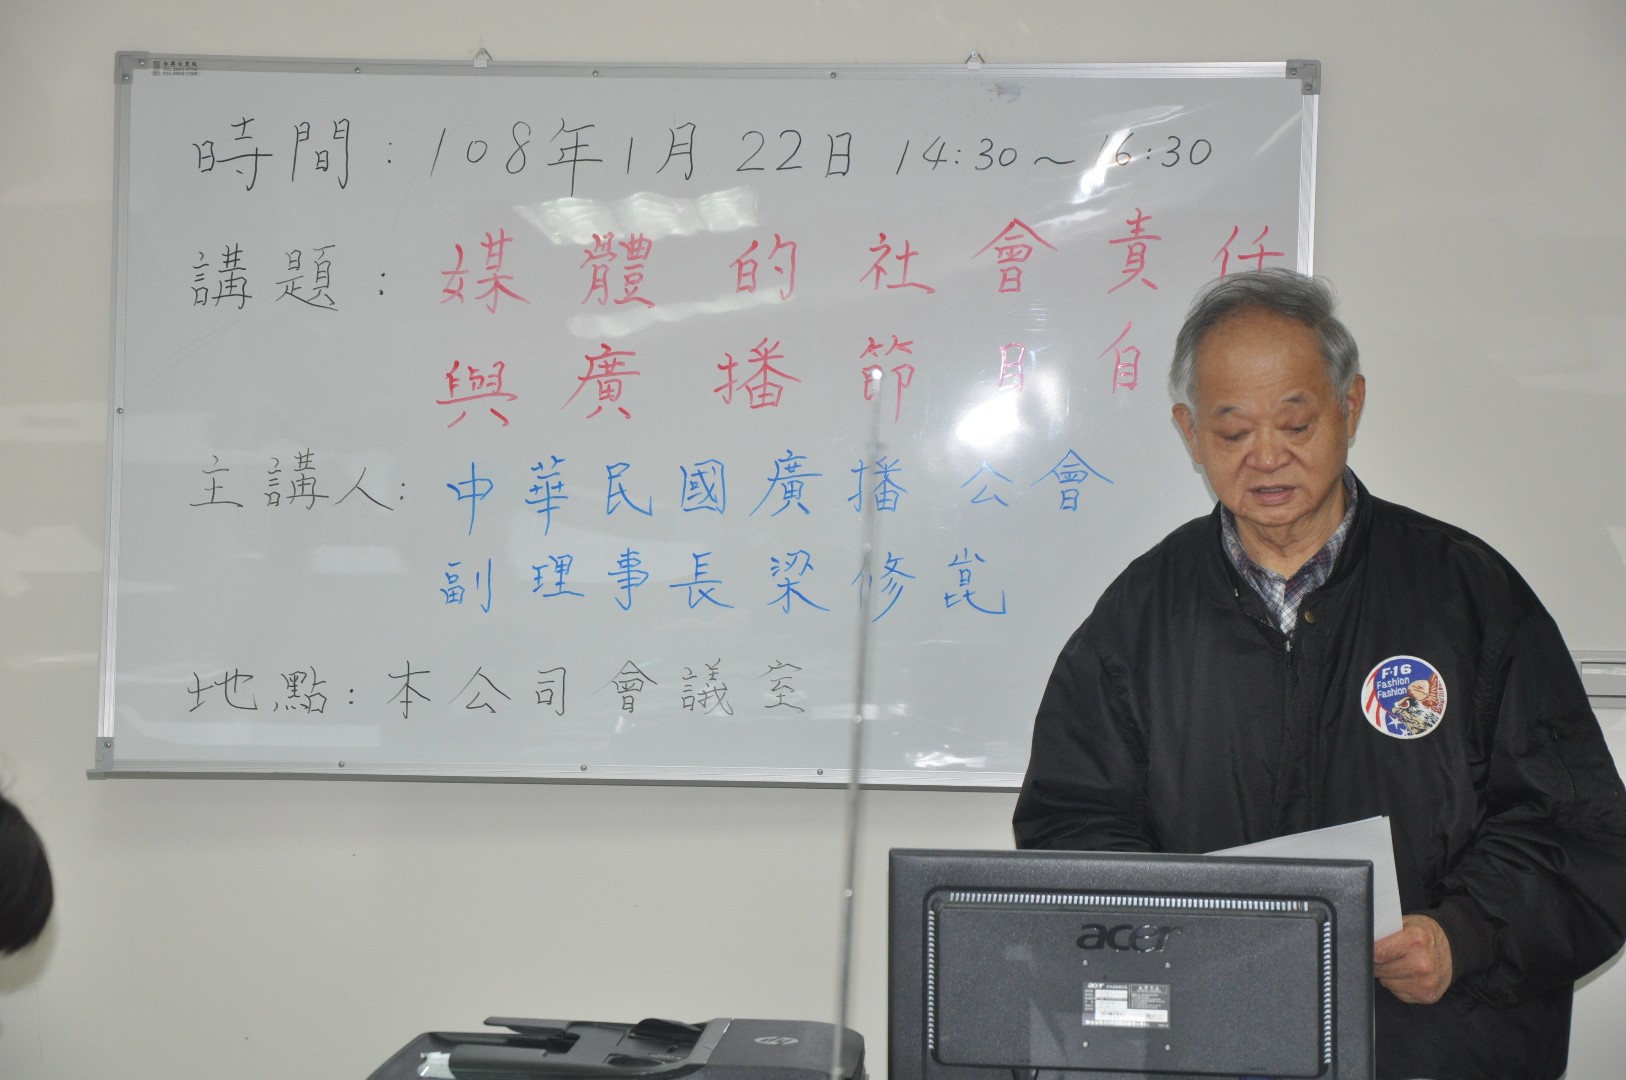 時間：108年1月22日 14:30～16:30
講題：媒體的社會責任
與廣播節目自
主講人：中華民國廣播公會
副理事長梁修崑
地點：本公司會議室
F-16
Fashion
Fashion
acer
acer
hp